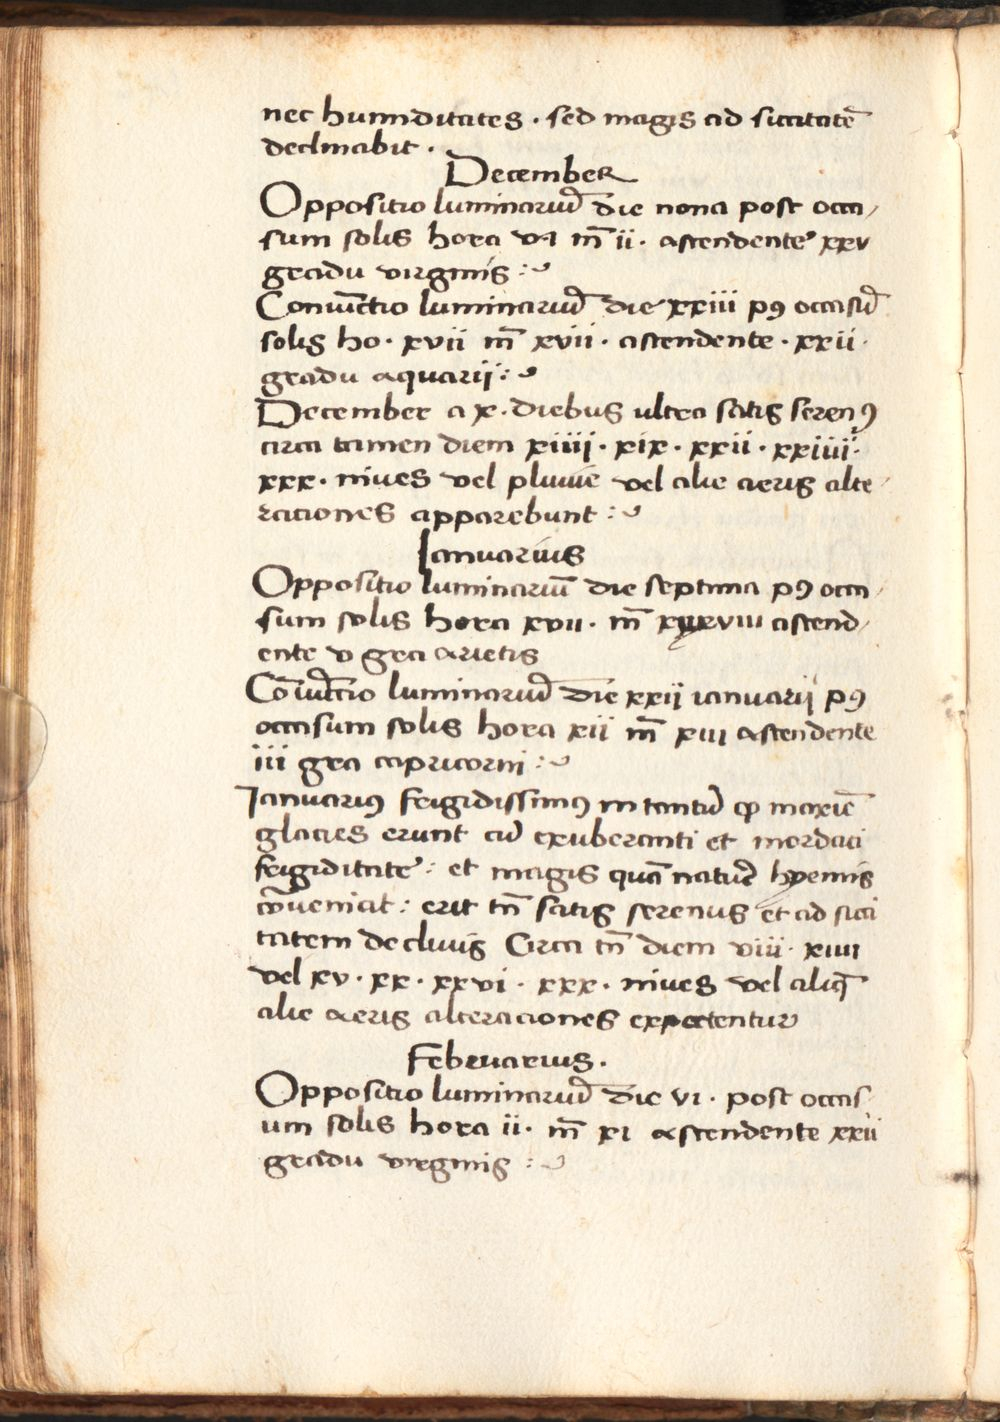 nec humiditates · sed magis ad siccitatē
declinabit ·
December
Oppositio luminariū die nona post occa/
sum solis hora vi m̄ ii · ascendente xxv
gradu virginis :~
Coniūctio luminariū die xxiii pꝯ occasū
solis ho · xvii m̄ xvii · ascendente · xxii ·
gradu aquarii :~
December a x · diebus ultra satis serenꝯ
circa tamen diem xiiii · xix · xxii · xxiiii ·
xxx · niues vel pluuie vel alie aeris alte
raciones apparebunt :~
Ianuarius
Oppositio luminariū die septima pꝯ occa/
sum solis hora xvii · m̄ ascend/
ente v gra arietis
Cōiūctio luminariū die xxii ianuarii pꝯ
occasum solis hora xii m̄ xiii ascendente
iii gra capricorni :~
Ianuariꝯ frigidissimꝯ in tantū ꝙ maxīe
glacies erunt cū exuberanti et mordaci
frigiditate : et magis quā natura hyemis
cōueniat : erit tn̄ satis serenus et ad sicci
tatem decliuis Circa tn̄ diem viii · xiiii
vel xv · xx · xxvi · xxx · niues vel aliq̄
alie aeris alteraciones expectentur
Februarius ·
Oppositio luminariū die vi · post occas
um solis hora ii · m̄ xi ascendente xxii
gradu virginis :~